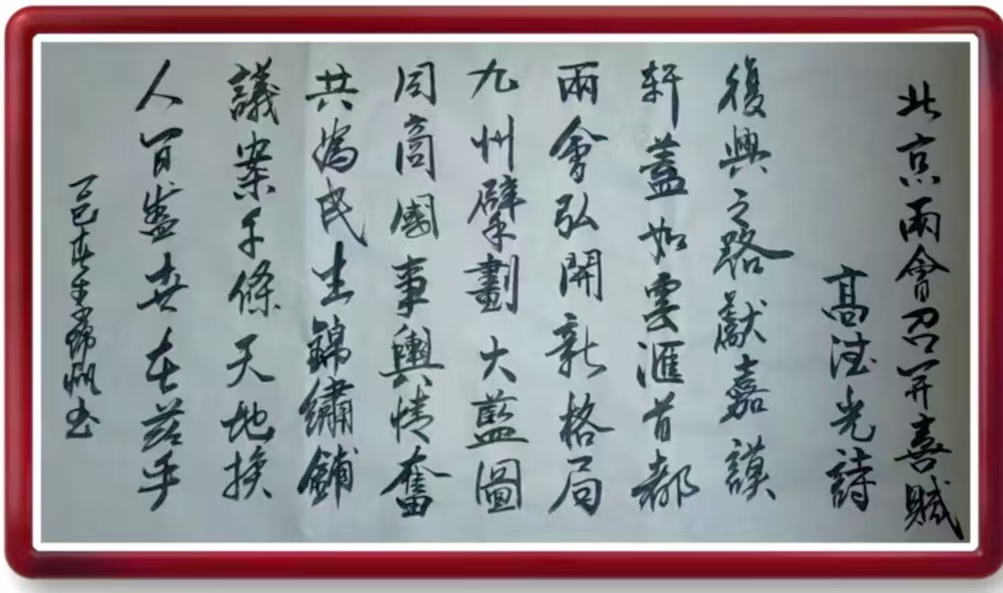 北京兩會召开喜賦
高德光詩
復興之路獻嘉謨
軒蓋如雲匯首都
兩會弘開新格局
九州擘劃大藍圖
同商國事輿情奮
共為民生錦繡鋪
議案千條天地換
人間盛世在茲乎
乙巳春 書